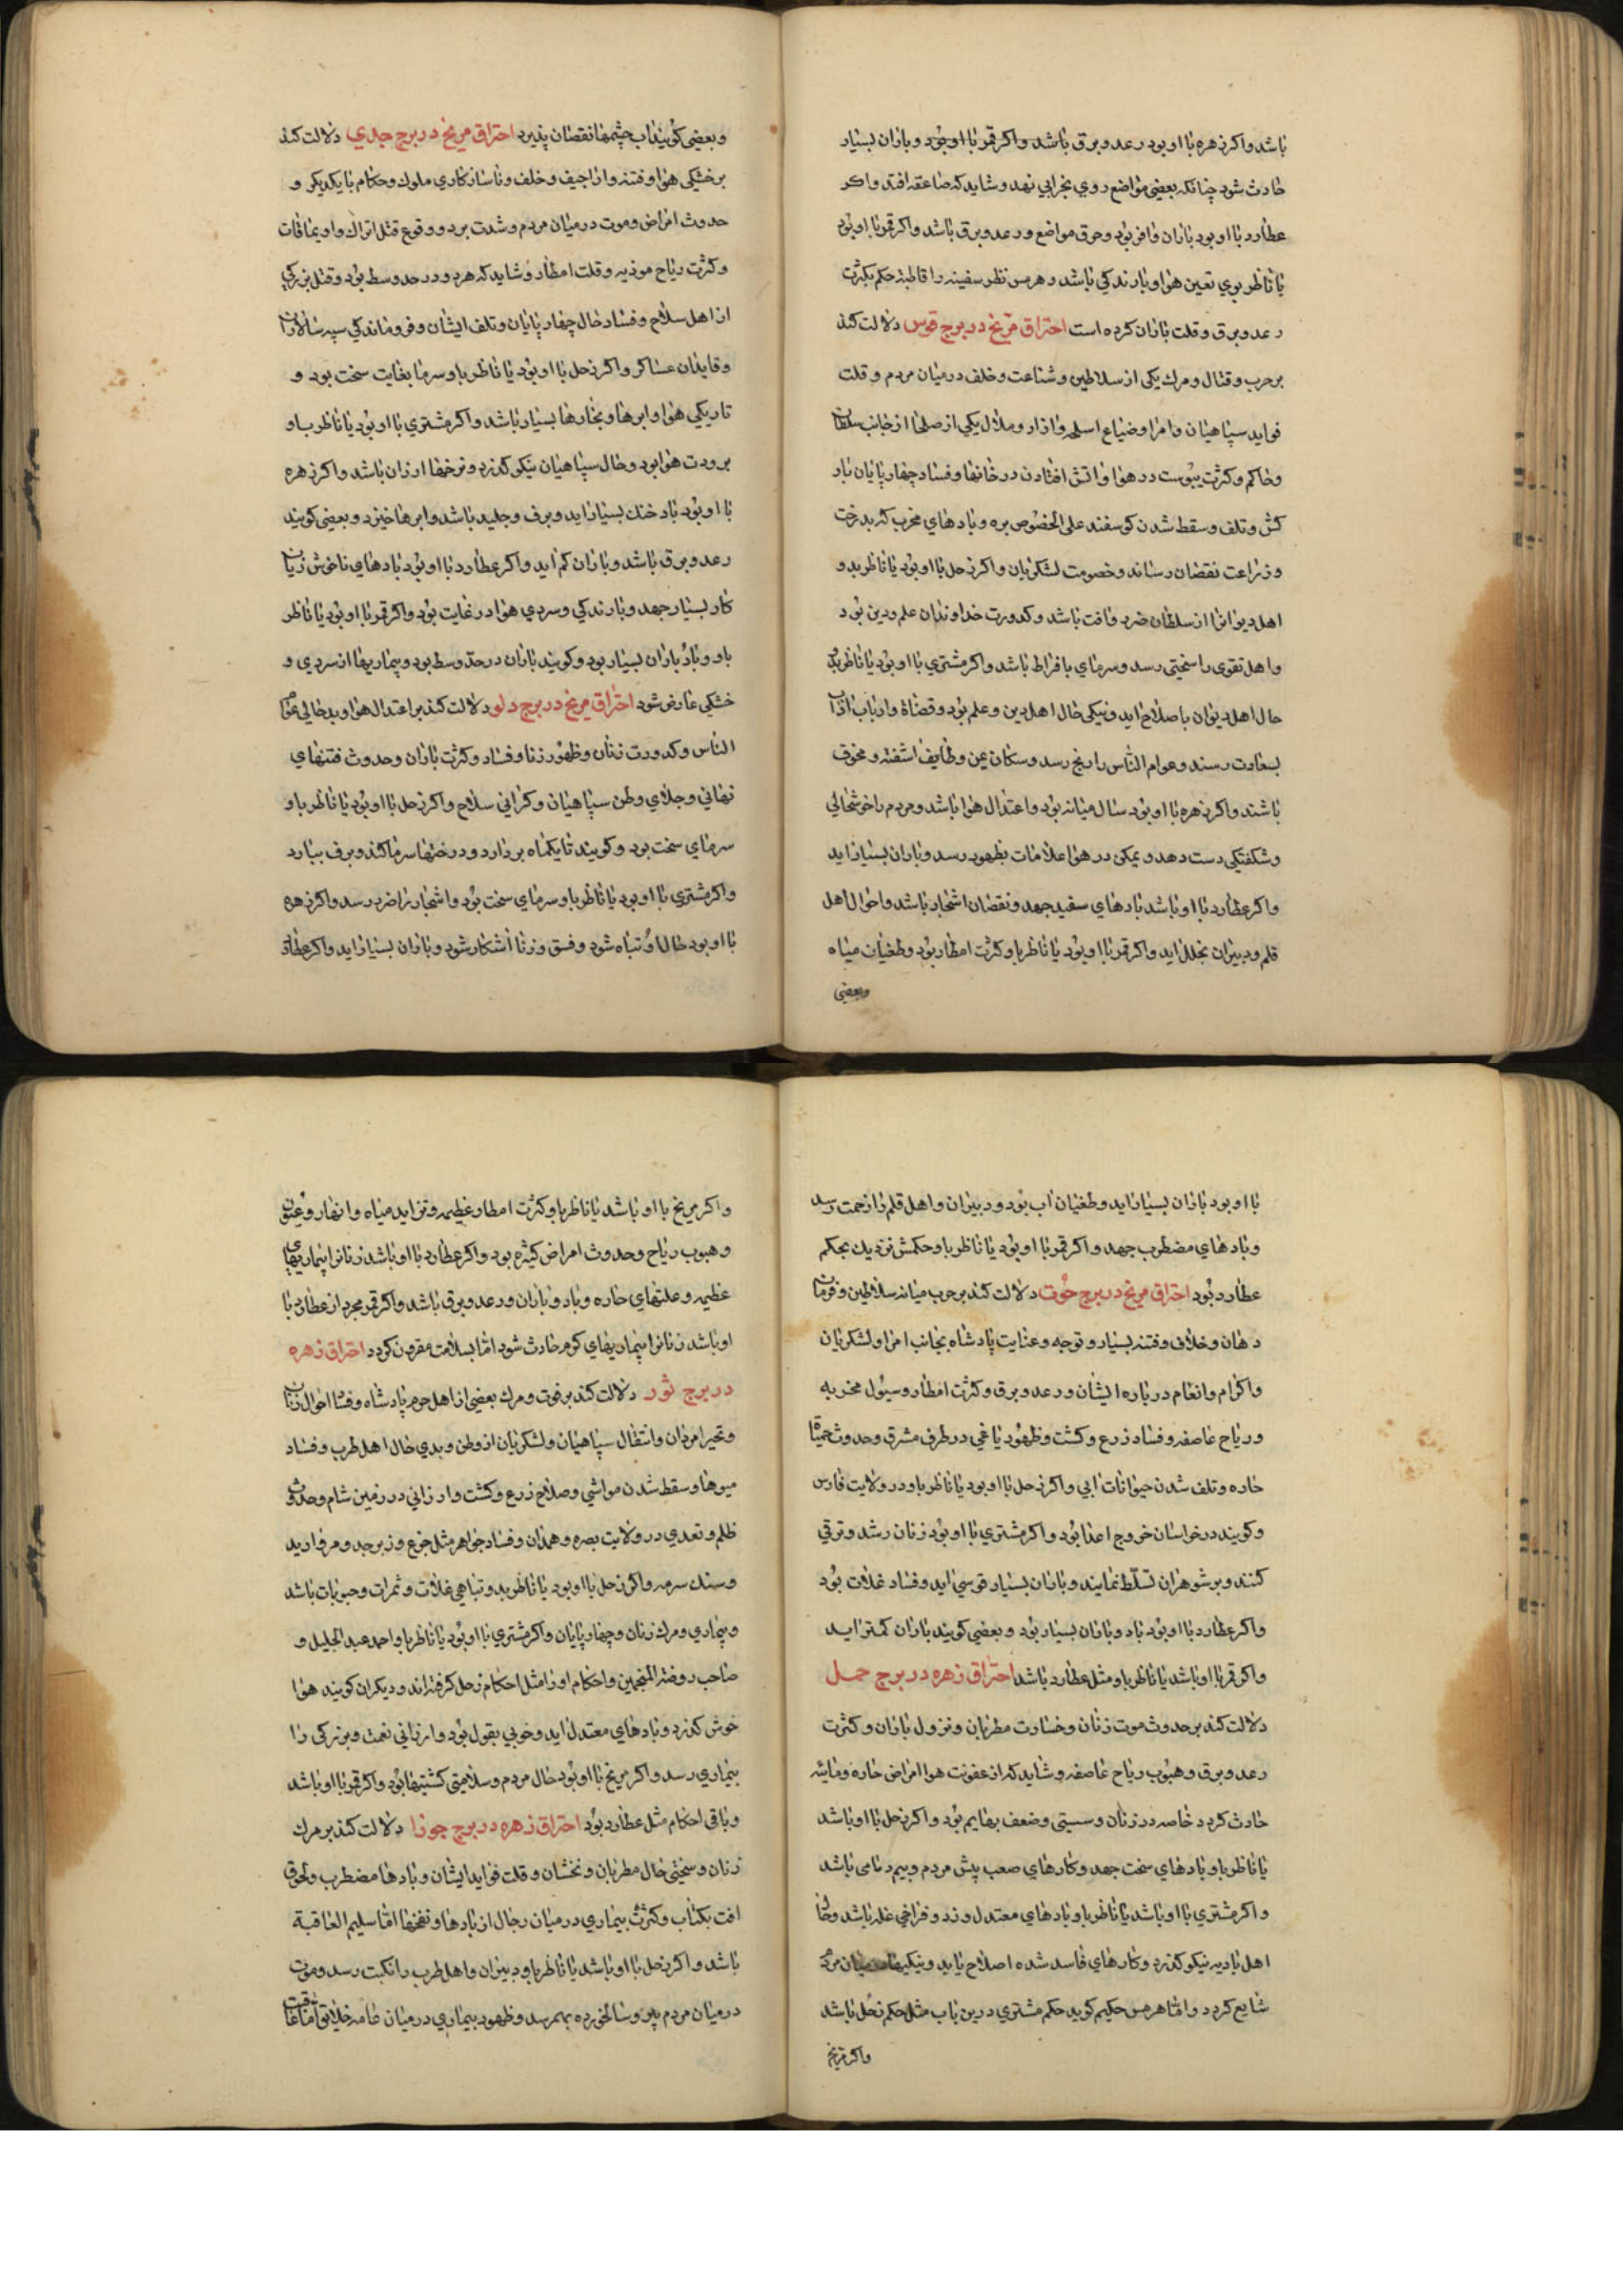 باشد واکر زهره با او بود رعد و برق باشد واکر قمر با او بود و باران بسیار
حادث شود چنانکه بعضی مواضع روی بخرابی نهد و شاید که صاعقه افتد واکر
عطارد با او بود باران وافر بود و حرق مواضع و رعد و برق باشد واکر قمر با او بود
یا ناظر بوی تعین هوا و بارندکی باشد و هرمس نظر سفینه را قاطبة حکم بکثرت
رعد و برق و قلت باران کرده است احتراق مریخ در برج قوس دلالت کند
بر حرب و قتال و مرک یکی از سلاطین و شناعت و خلف درمیان مردم و قلت
فواید سپاهیان و امرا و ضیاع اسلحه و ازار و ملال یکی از صلحا از جانب سلطان
و حاکم و کثرت یبوست در هوا و اتش افتادن در خانها و فساد چهارپایان بار
کش و تلف و سقط شدن کوسفند علی الخصوص بره و بادهای مخرب که بدرخت
و زراعت نقصان رساند و خصومت لشکریان واکر زحل با او بود یا ناظر بدو
اهل دیوانرا از سلطان ضرر و افت باشد و کدورت خداوندان علم و دین بود
و اهل تقوی را سختی رسد و سرمای بافراط باشد واکر مشتری با او بود یا ناظر بدو
حال اهل دیوان باصلاح اید و نیکی حال اهل دین و علم بود و قضاة و ارباب
بسعادت رسند و عوام الناس را رنج رسد و سکان یمن و طایف اشفته و مخوف
باشند واکر زهره با او بود سال میانه بود و اعتدال هوا باشد و مردم را خوشحالی
و شکفتکی دست دهد و یمکن در هوا علامات بظهور رسد و باران بسیار اید
واکر عطارد با او باشد بادهای سفید جهد و نقصان اشجار باشد و احوال اهل
قلم و دبیران بخلل اید واکر قمر با او بود یا ناظر باو کثرت امطار بود و طغیان میاه
وبعضی
وبعضی کویند اب چشمها نقصان پذیرد احتراق مریخ در برج جدی دلالت کند
بر خشکی هوا و فتنه و اراجیف و خلف و ناسازکاری ملوک و حکام با یکدیکر و
حدوث امراض و موت درمیان مردم و شدت برد و وقوع قتل اتراک و اویماقات
و کثرت ریاح موذیه و قلت امطار و شاید که هر دو در حد وسط بود و قتل بزرکی
از اهل سلاح و فساد حال چهارپایان و تلف ایشان و فروماندکی سپه سالاران
و قایدان عساکر واکر زحل با او بود یا ناظر باو سرما بغایت سخت بود و
تاریکی هوا و ابرها و بخارها بسیار باشد واکر مشتری با او بود یا ناظر باو
برودت هوا بود و حال سپاهیان نیکو کذرد و نرخها ارزان باشد واکر زهره
با او بود باد خنک بسیار اید و برف و جلید باشد و ابرها خیزد و بعضی کویند
رعد و برق باشد و باران کم اید واکر عطارد با او بود بادهای ناخوش زیان
کار بسیار جهد و بارندکی و سردی هوا در غایت بود واکر قمر با او بود یا ناظر
باو و باد باران بسیار بود و کویند باران در حد وسط بود و بیماریها از سردی و
خشکی عارض شود احتراق مریخ در برج دلو دلالت کند بر اعتدال هوا و بدحالی عوام
الناس و کدورت زنان و ظهور زنا و فساد و کثرت باران و حدوث فتنهای
نهانی و جلای وطن سپاهیان و کرانی سلاح واکر زحل با او بود یا ناظر باو
سرمای سخت بود و کویند تا یکماه بردارد و درختها سرما کند و برف ببارد
واکر مشتری با او بود یا ناظر باو سرمای سخت بود و اشجار را ضرر رسد واکر زهره
با او بود حال او تباه شود و فسق و زنا اشکار شود و باران بسیار اید واکر عطارد
با او بود باران بسیار اید و طغیان اب بود و دبیران و اهل قلم را زحمت رسد
و بادهای مضطرب جهد واکر قمر با او بود یا ناظر باو حکمش نزدیک بحکم
عطارد بود احتراق مریخ در برج حوت دلالت کند بر حرب میانه سلاطین و فرمان
دهان و خلاف و فتنه بسیار و توجه و عنایت پادشاه بجانب امرا و لشکریان
و اکرام و انعام درباره ایشان و رعد و برق و کثرت امطار و سیول مخربه
و ریاح عاصفه و فساد زرع و کشت و ظهور یاغی در طرف مشرق و حدوث حمیات
حاره و تلف شدن حیوانات ابی واکر زحل با او بود یا ناظر باو در ولایت فارس
و کویند در خراسان خروج اعدا بود واکر مشتری با او بود زنان رشد و ترقی
کنند و بر شوهران تسلط نمایند و باران بسیار قوسی اید و فساد غلات بود
واکر عطارد با او بود باد و باران بسیار بود و بعضی کویند باران کمتر اید
واکر قمر با او باشد یا ناظر باو مثل عطارد باشد احتراق زهره در برج حمل
دلالت کند بر حدوث موت زنان و خسارت مطربان و نزول باران و کثرت
رعد و برق و هبوب ریاح عاصفه و شاید که از عفونت هوا امراض حاره ومائیه
حادث کردد خاصه در زنان و سستی و ضعف بهایم بود واکر زحل با او باشد
یا ناظر باو بادهای سخت جهد و کارهای صعب پیش مردم و بیم دنامی باشد
واکر مشتری با او باشد یا ناظر باو بادهای معتدل وزد و فراخی غله باشد و حال
اهل بادیه نیکو کذرد و کارهای فاسد شده اصلاح یابد و نیکیها درمیان مردم
شایع کردد و اما هرمس حکیم کوید حکم مشتری درین باب مثل حکم زحل باشد
واکر مریخ
واکر مریخ با او باشد یا ناظر باو کثرت امطار عظیمه و تزاید میاه و انهار و عیون
و هبوب ریاح و حدوث امراض کثیره بود واکر عطارد با او باشد زنانرا بیماریهای
عظیمه و علتهای حاره و باد و باران و رعد و برق باشد واکر قمر مجرد از عطارد با
او باشد زنانرا بیماریهای کرم حادث شود اما بسلامت مقرون کردد احتراق زهره
در برج ثور دلالت کند بر فوت و مرک بعضی از اهل حرم پادشاه و فساد احوال زنان
و تحیر امردان و انتقال سپاهیان و لشکریان از وطن و بدی حال اهل طرب و فساد
میوها و سقط شدن مواشی و صلاح زرع و کشت و ارزانی در زمین شام و حدوث
ظلم و تعدی در ولایت بصره و همدان و فساد جواهر مثل جزع و زبرجد و مروارید
و سنک سرمه واکر زحل با او بود یا ناظر بدو تباهی غلات و ثمرات و حبوبات باشد
و بیماری و مرک زنان و چهارپایان واکر مشتری با او بود یا ناظر باو احمد عبد الجلیل و
صاحب روضة المنجمین و احکام او را مثل احکام زحل کرفته اند و دیکران کویند هوا
خوش کذرد و بادهای معتدل اید و خوبی بقول بود و ارزانی نعمت و بزرکی را
بیماری رسد واکر مریخ با او بود حال مردم و سلامتی کشتیها بود واکر قمر با او باشد
و باقی احکام مثل عطارد بود احتراق زهره در برج جوزا دلالت کند بر مرک
زنان و سختی حال مطربان و نخشان و قلت فواید ایشان و بادها مضطرب و لحوق
افت بکتاب و کثرت بیماری درمیان رجال از بادها و نفخها اما سلیم العاقبة
باشد واکر زحل با او باشد یا ناظر باو دبیران و اهل طرب را نکبت رسد و موت
درمیان مردم پیر و سالخورده بهمرسد و ظهور بیماری درمیان عامه خلایق اما عاقبت